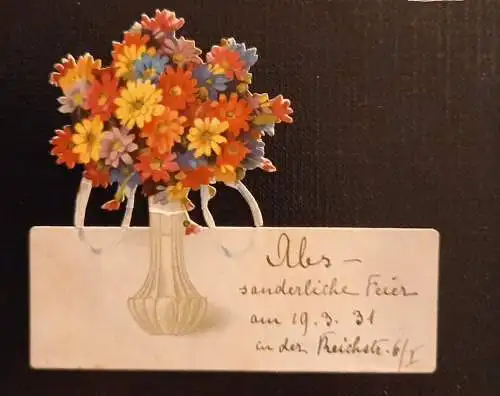 Abs-
sonderliche Feier
am 19. 3. 31
in der Reichstr. 6/I